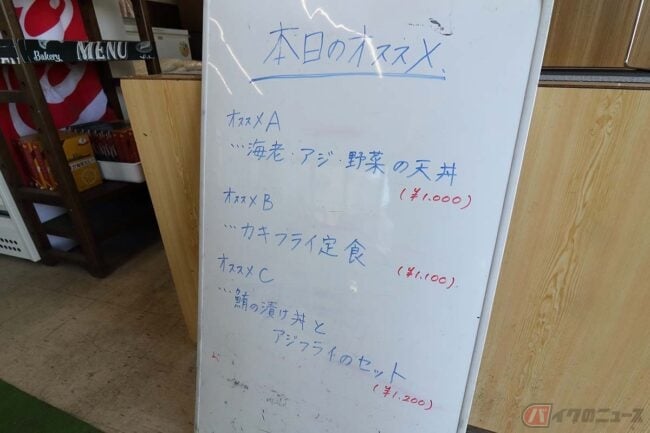 Bakery
MENU
本日のオススメ
オススメA
…海老・アジ・野菜の天丼
(¥1.000)
オススメB
…カキフライ定食
(¥1,100)
オススメC
…鮪の漬け丼と
アジフライのセット
(¥1,200)
バイクのニュース